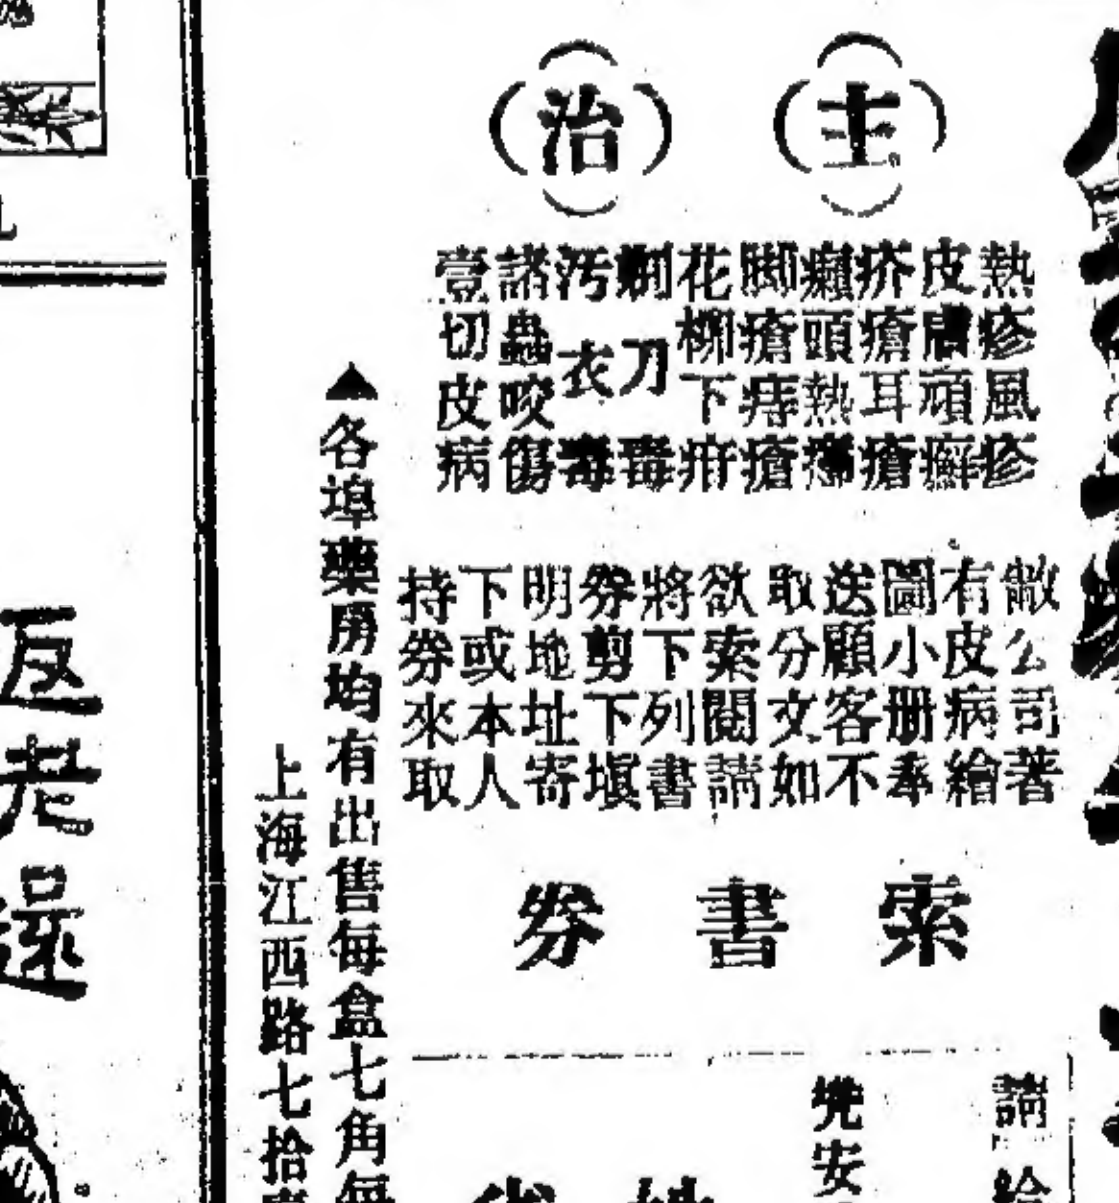 主治
熱疹風疹
皮膚頑癬
疥瘡耳瘡
癩頭熱
脚瘡痔瘡
花柳下疳
剃刀毒
汚衣毒
諸蟲咬傷
壹切皮病
敝公司著
有皮病繪
圖小册奉
送顧客不
取分文如
欲索閱請
將下列書
券剪下塡
明地址寄
下或本人
持券來取
索書券
請繪
兜安
▲各埠藥房均有出售每盒七角每
上海江西路七拾
返老還